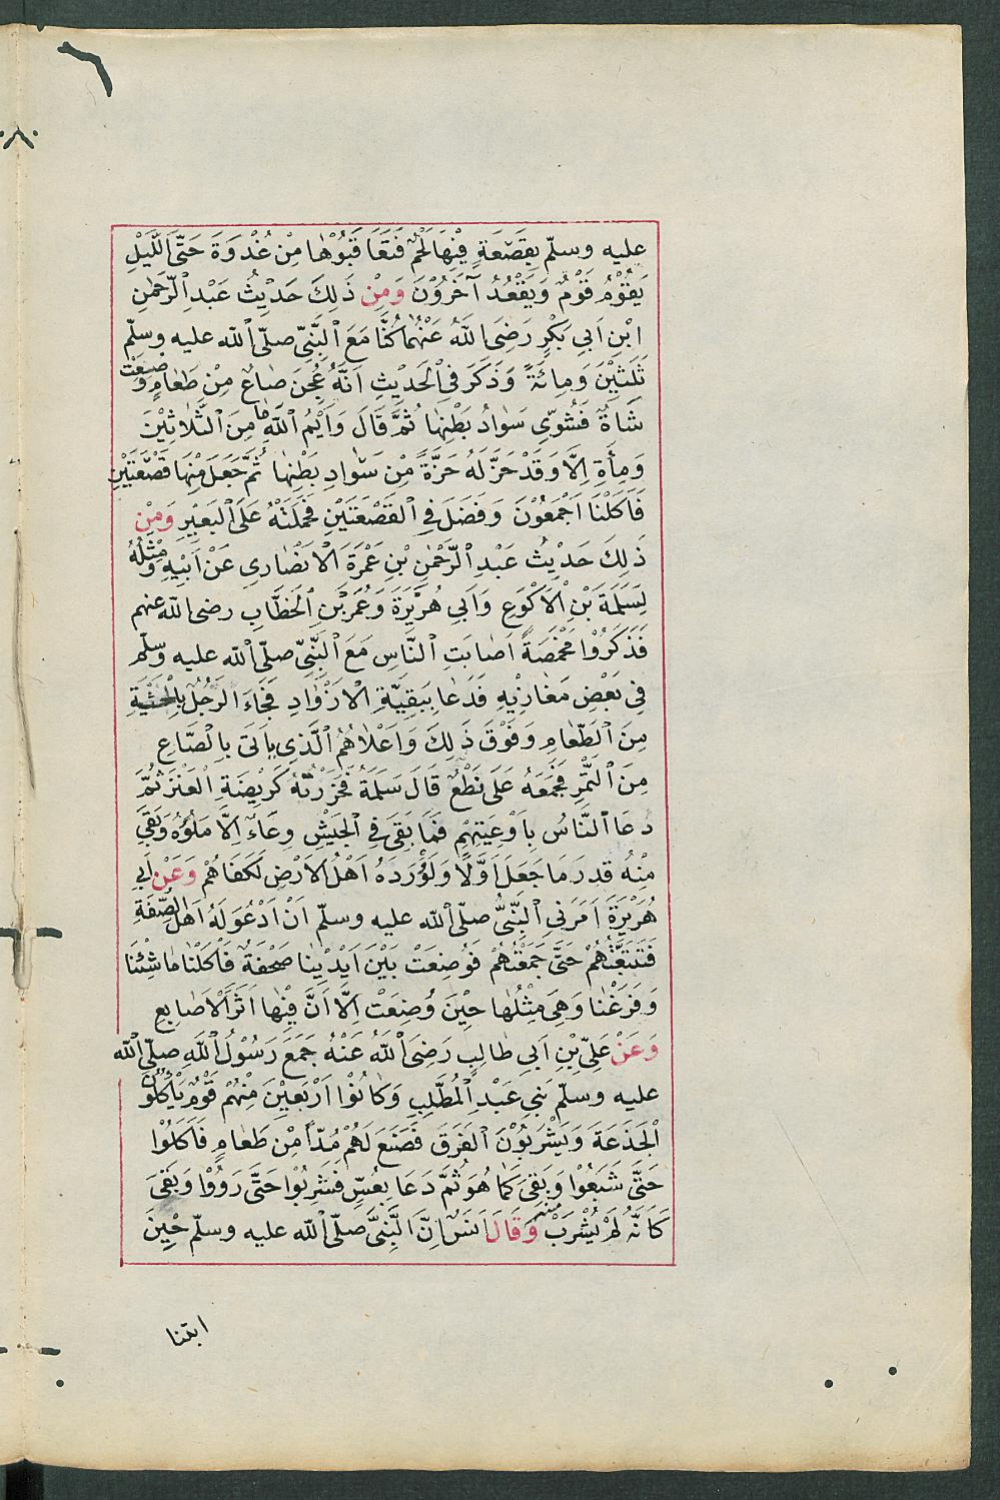 عليه وسلّم بِقَصْعَةٍ فِيْهَا لَحْمٌ فَتَعَاقَبُوْهَا مِنْ غُدْوَةَ حَتَّى الَّلَيْلِ
يَقُوْمُ قَوْمٌ وَيَقْعُدُ آخَرُوْنَ وَمِنْ ذَلِكَ حَدِيْثُ عَبْدِ الرَّحْمٰنِ
ابْنِ اَبِي بَكْرٍ رَضِيَ اللّٰهُ عَنْهُمَا كُنَّا مَعَ النَّبِيِّ صلّى الله عليه وسلّم
ثَلٰثِيْنَ وَمِائَةً وَذَكَرَ فِي الْحَدِيْثِ اَنَّهُ عُجِنَ صَاعٌ مِنْ طَعَامٍ وَصُنِعَتْ
شَاةٌ فَشُوِّيَ سَوَادُ بَطْنِهَا ثُمَّ قَالَ وَايْمُ اللّٰهِ مَا مِنَ الثَّلَاثِيْنَ
وَمِأَةٍ اِلَّا وَقَدْ حَزَّ لَهُ حَزَّةً مِنْ سَوَادِ بَطْنِهَا ثُمَّ جَعَلَ مِنْهَا قَصْعَتَيْنِ
فَاَكَلْنَا اَجْمَعُوْنَ وَفَضَلَ فِي الْقَصْعَتَيْنِ فَحَمَلْتُهُ عَلَى الْبَعِيْرِ وَمِنْ
ذَلِكَ حَدِيْثُ عَبْدِ الرَّحْمٰنِ بْنِ عَمْرَةَ الْاَنْصَارِي عَنْ اَبِيْهِ وَمِثْلُهُ
لِسَلَمَةَ بْنِ الْاَكْوَعِ وَاَبِي هُرَيْرَةَ وَعُمَرَ بْنِ الْخَطَّابِ رضى الله عنهم
فَذَكَرُوْا مَخْمَصَةً اَصَابَتِ النَّاسِ مَعَ النَّبِيِّ صلّى الله عليه وسلّم
فِي بَعْضِ مَغَازِيْهِ فَدَعَا بِبَقِيَّةِ الْاَزْوَادِ فَجَاءَ الرَّجُلُ بِالْحَثْيَةِ
مِنَ الطَّعَامِ وَفَوْقَ ذَلِكَ وَاَعْلَاهُمُ الَّذِي يَاتَى بِالصَّاعِ
مِنَ التَّمْرِ فَجَمَعَهُ عَلَى نَطْعٍ قَالَ سَلَمَةُ فَحَزَرْتُهُ كَرَبِيْضَةِ الْعَنْزِ ثُمَّ
دعَا النَّاسُ بِاَوْعِيَتِهِمْ فَمَا بَقِيَ فِي الْجَيْشِ وِعَاءٌ اِلَّا مَلَؤُهُ وَبَقِيَ
مِنْهُ قدرَ مَا جَعَلَ اَوَّلًا وَلَوْ وَرَدَهُ اَهْلُ الْاَرْضِ لَكَفَاهُمْ وَعَنْ اَبِي
هُرَيْرَةَ اَمَرَنِي النَّبِيُّ صلّى الله عليه وسلّم اَنْ اَدْعُوَ لَهُ اَهْلَ الصُّفَّةِ
فَتَتَبَّعْتُهُمْ حَتَّى جَمَعْتُهُمْ فَوُضِعَتْ بَيْنَ اَيْدِيْنَا صَحْفَةٌ فَاَكَلْنَا مَا شِئْنَا
وَفَرَغْنَا وَهِيَ مِثْلُهَا حِيْنَ وُضِعَتْ اِلَّا اَنَّ فِيْهَا اَثَرَ الْاَصَابِعِ
وَعَنْ عَلِيِّ بْنِ اَبِي طَالِبٍ رَضِيَ اللّٰهُ عَنْهُ جَمَعَ رَسُوْلُ اللّٰهِ صلّى الله
عليه وسلّم بَنِي عَبْدِ الْمُطَّلِبِ وَكَانُوْا اَرْبَعِيْنَ مِنْهُمْ قَوْمٌ يَأْكُلُوْنَ
الْجَذَعَةَ وَيَشْرَبُوْنَ الْفَرَقَ فَصَنَعَ لَهُمْ مُدّاً مِنْ طَعَامٍ فَاَكَلُوْا
حَتَّى شَبَعُوْا وَبَقِيَ كَمَا هُوَ ثُمَّ دَعَا بِعُسٍّ فَشَرِبُوْا حَتَّى رَوُوْا وَبَقِيَ
كَاَنَّهُ لَمْ يُشْرَبْ منه وَقَالَ اَنَسٌ اِنَّ النَّبِيَّ صلّى الله عليه وسلّم حِيْنَ
ابتنا